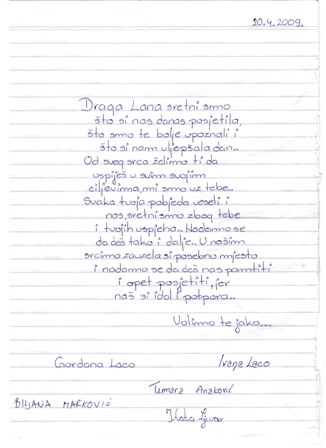 20.4.2009.
Draga Lana sretni smo
što si nas danas posjetila,
što smo te bolje upoznali i
što si nam uljepšala dan..
Od sveg srca želimo ti da
uspiješ u svim svojim
ciljevima, mi smo uz tebe..
Svaka tvoja pobjeda veseli i
nas, sretni smo zbog tebe
i tvojih uspjeha.. Nadamo se
da ćeš tako i dalje.. U našim
srcima zauzela si posebno mjesto
i nadamo se da ćeš nas pamtiti
i opet posjetiti, jer
naš si idol i potpora..
Volimo te jako....
Gordana Laco
Ivana Laco
Tamara
BILJANA MARKOVIĆ
Kata